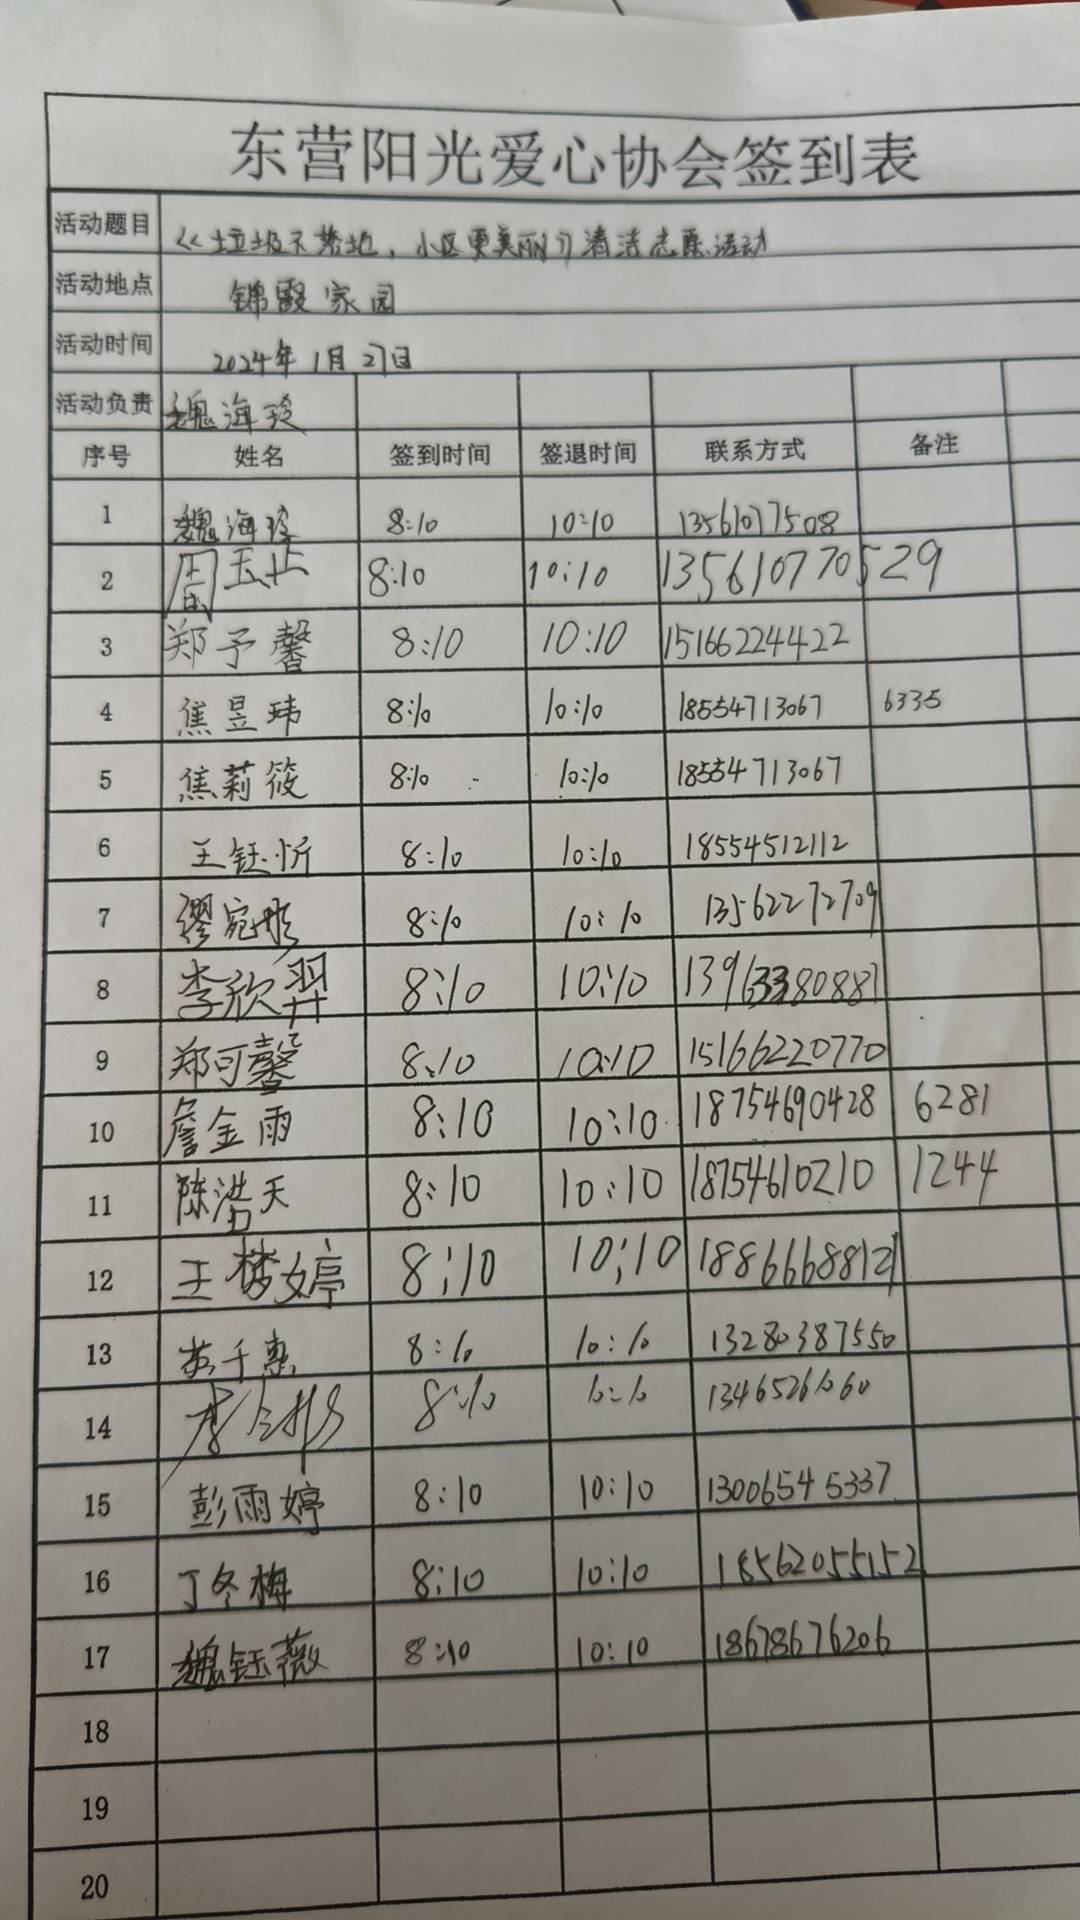 东营阳光爱心协会签到表
活动题目 《垃圾不落地，小区更美丽》清洁志愿活动
活动地点 锦霞家园
活动时间 2024年1月27日
活动负责 魏海玲
序号 姓名 签到时间 签退时间 联系方式 备注
1 魏海玲 8:10 10:10 13561077508
2 周玉 8:10 10:10 135610770529
3 郑予馨 8:10 10:10 15166224422
4 焦昱玮 8:10 10:10 18554713067 6335
5 焦莉筱 8:10 10:10 18554713067
6 王钰忻 8:10 10:10 18554512112
7 缪宛彤 8:10 10:10 13562272709
8 李欣羿 8:10 10:10 13963380887
9 郑可馨 8:10 10:10 15166220770
10 詹金雨 8:10 10:10 18754690428 6281
11 陈浩天 8:10 10:10 18754610210 1244
12 王梦婷 8:10 10:10 18866688121
13 千惠 8:10 10:10 13280387550
14 8:10 10:10 13465261060
15 彭雨婷 8:10 10:10 13006545337
16 丁冬梅 8:10 10:10 18562055152
17 魏钰薇 8:10 10:10 18678676206
18
19
20